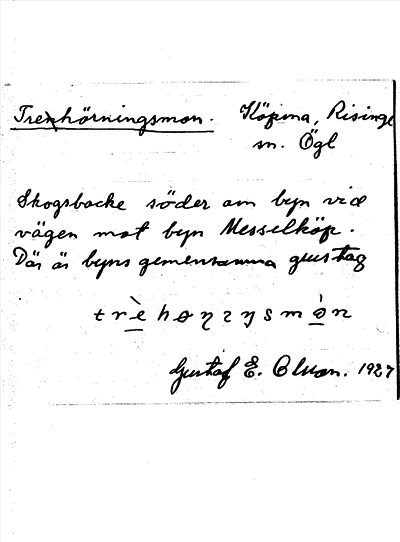 Trehörningsmon. Köpma, Risinge
sn. Ögl
Skogsbacke söder om byn vid
vägen mot byn Messelköp.
Där är byns gemensamma grustag
Gustaf E. Olsson. 1927